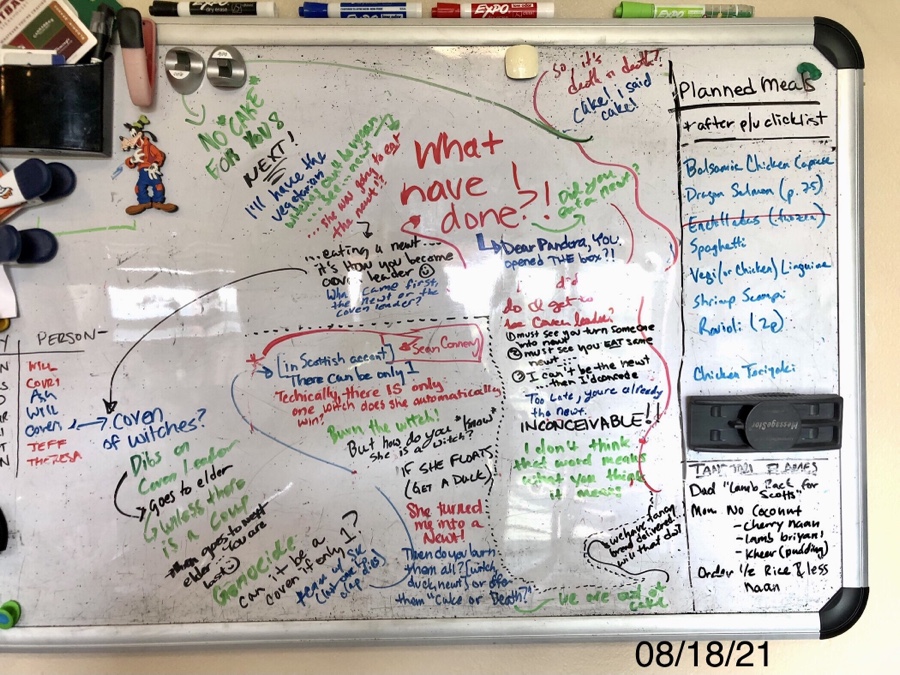 EXPO
EXPO
EXPO
EXPO
NO "CAKE"
FOR YOU 8
NEXT!
I'll have the
vegetarian
... she was going to eat
the newt!!
What
have
done?!
!
So, it's
death or death?
Cake! I said
cake!
Did you
get a newt?
Dear Pandora, You
opened THE box?!
...eating a newt...
it's HOW you become
coven leader ☺
Who came first,
the newt or the
coven leader?
I did
do I get to
be Coven leader?
① must see you turn someone
into newt
② must see you EAT same
newt
③ I can't be the newt
then I decode
Too late, you're already
the newt.
INCONCEIVABLE!!
I don't think
that word means
what you think
it means
PERSON
WILL
COURT
Ash
WILL
Coven
JEFF
THERESA
Coven
of witches?
Dibs on
Coven leader
goes to elder
unless there
is a coup
then goes to next
elder you are
last ☺
Genocide
can it be a
coven if only 1?
(in Scottish accent)
Sean Connery
There can be only 1
Techically, there IS only
one witch does she automatically
win?
Burn the witch!
But how do you "know"
she is a witch?
IF SHE FLOATS
(GET A DUCK)
She turned
me into a
Newt!
Then do you burn
them all? (witch,
duck, newt) or offer
them "Cake or Death?"
we are out of
cake
we have fancy
bread delivered
will that do?
Planned Meals
*after p/u clicklist
Balsamic Chicken Caprese
Dragon Salmon (p. 25)
Enchiladas (frozen)
Spaghetti
Vegi (or Chicken) Linguine
Shrimp Scampi
Ravioli (2p)
Chicken Teriyaki
MessageStor
TANDORI FLAMES
Dad "Lamb Rack for
Scotts"
Mom No Coconut
- cherry naan
- lamb briyani
- kheer (pudding)
Order 1/2 Rice & less
naan
08/18/21